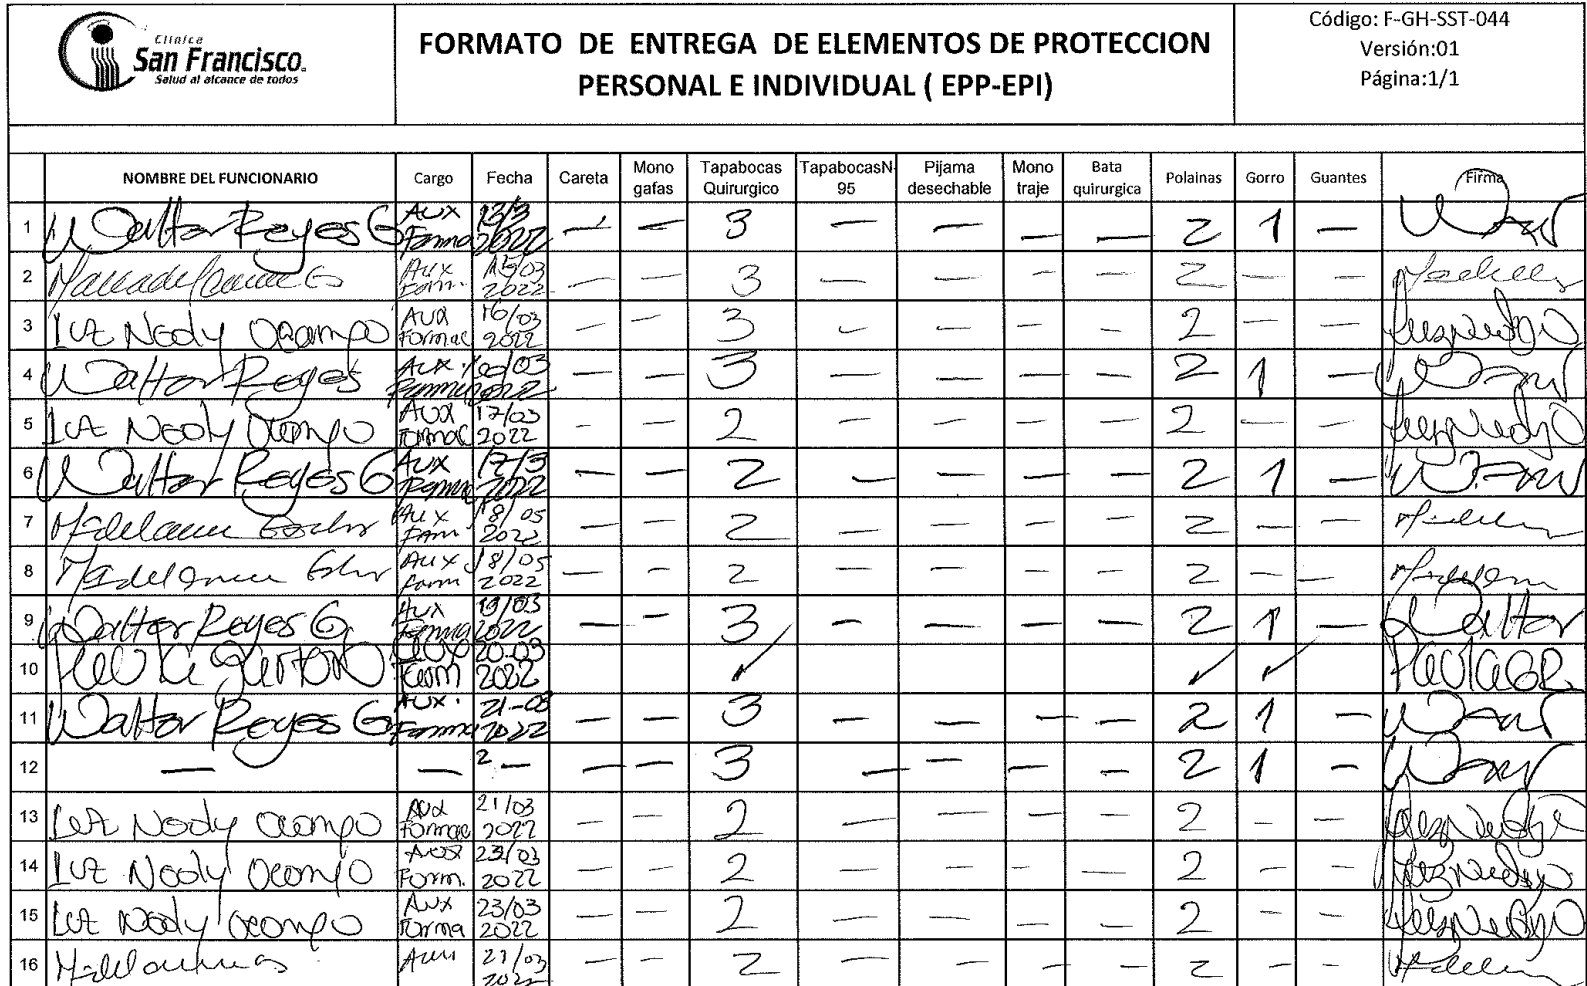 Clínica
San Francisco.
Salud al alcance de todos
FORMATO DE ENTREGA DE ELEMENTOS DE PROTECCION
PERSONAL E INDIVIDUAL ( EPP-EPI)
Código: F-GH-SST-044
Versión:01
Página:1/1
NOMBRE DEL FUNCIONARIO Cargo Fecha Careta Mono gafas Tapabocas Quirurgico TapabocasN-95 Pijama desechable Mono traje Bata quirurgica Polainas Gorro Guantes Firma
1 Walter Reyes G Aux Farma 2022 — — 3 — — — — 2 1 —
2 Aux Farm. 15/03 2022 — — 3 — — — — 2 — —
3 Luz Nedy Ocampo Aux Farmac 16/03 2022 — — 3 — — — — 2 — —
4 Walter Reyes Aux. /03 2022 — — 3 — — — — 2 1 —
5 Luz Nedy Ocampo Aux Farmac 17/03 2022 — — 2 — — — — 2 — —
6 Walter Reyes G Aux Farma 17/3 2022 — — 2 — — — — 2 1 —
7 Aux Farm 18/05 2022 — — 2 — — — — 2 — —
8 Aux Farm 18/05 2022 — — 2 — — — — 2 — —
9 Walter Reyes G. Aux Farma 19/03 2022 — — 3 — — — — 2 1 — Walter
10 Aux Farm 20-03 2022 ✓ ✓ ✓
11 Walter Reyes G Aux. Farma 21-03 2022 — — 3 — — — — 2 1 —
12 — — 2 — — — 3 — — — — 2 1 —
13 Luz Nedy Ocampo Aux Farmac 21/03 2022 — — 2 — — — — 2 — —
14 Luz Nedy Ocampo Aux Farm. 23/03 2022 — — 2 — — — — 2 — —
15 Luz Nedy Ocampo Aux Farma 23/03 2022 — — 2 — — — — 2 — —
16 21/03 2022 — — 2 — — — — 2 — —